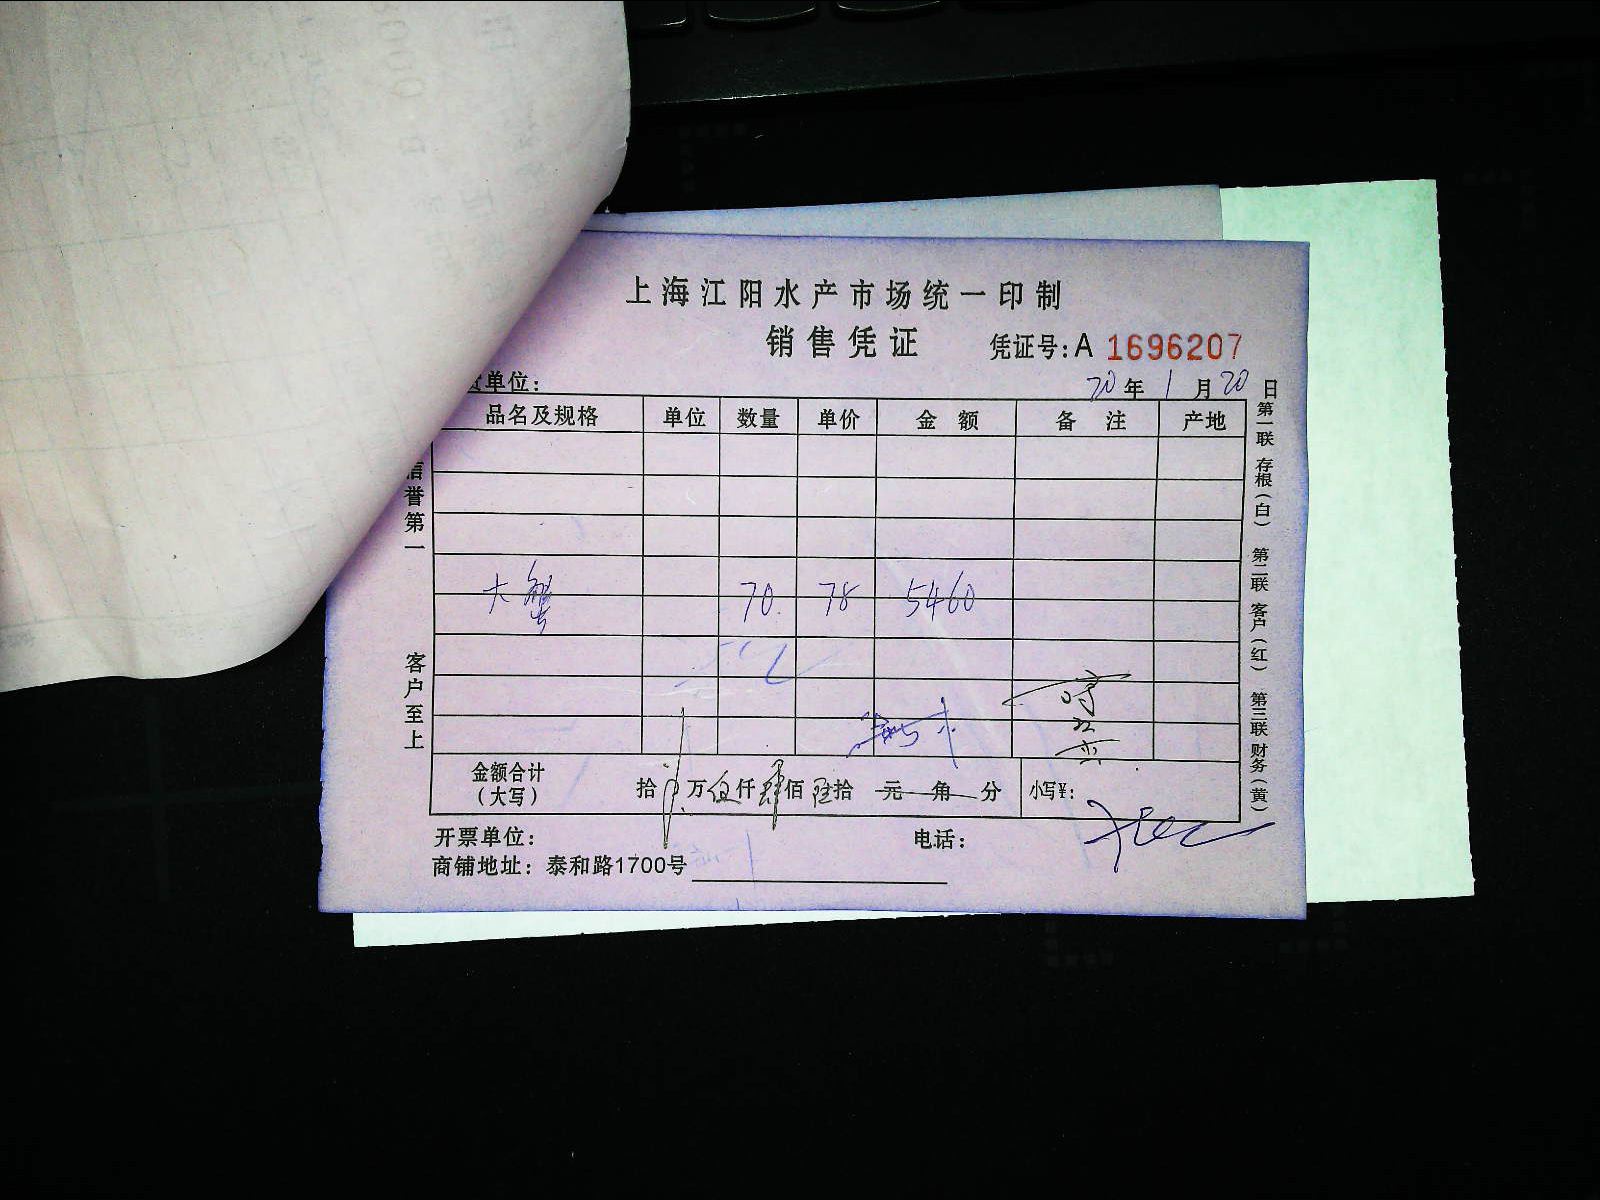 上海江阳水产市场统一印制
销售凭证 凭证号:A 1696207
单位: 20年1月20日
品名及规格 单位 数量 单价 金额 备注 产地
大蟹 70. 78 5460
金额合计(大写) 拾 万伍仟肆佰陆拾 元 角 分 小写¥:
开票单位: 电话:
商铺地址: 泰和路1700号
信誉第一
客户至上
第一联 存根(白) 第二联 客户(红) 第三联 财务(黄)